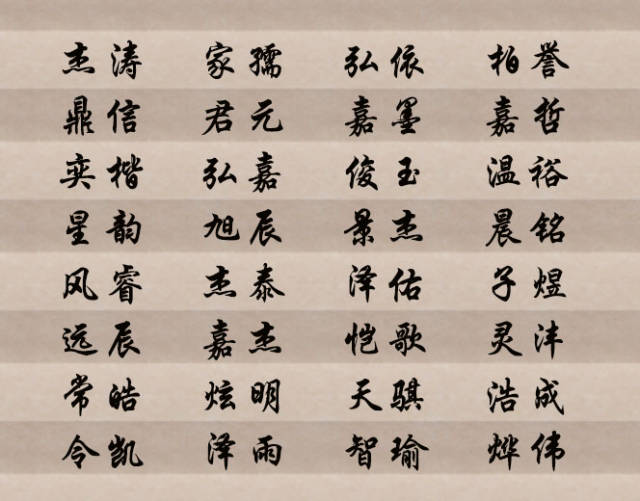 杰涛 家孺 弘依 柏誉
鼎信 君元 嘉墨 嘉哲
奕楷 弘嘉 俊玉 温裕
星韵 旭辰 景杰 晨铭
风睿 杰泰 泽佑 子煜
远辰 嘉杰 恺歌 灵沣
常皓 炫明 天骐 浩成
令凯 泽雨 智瑜 烨伟